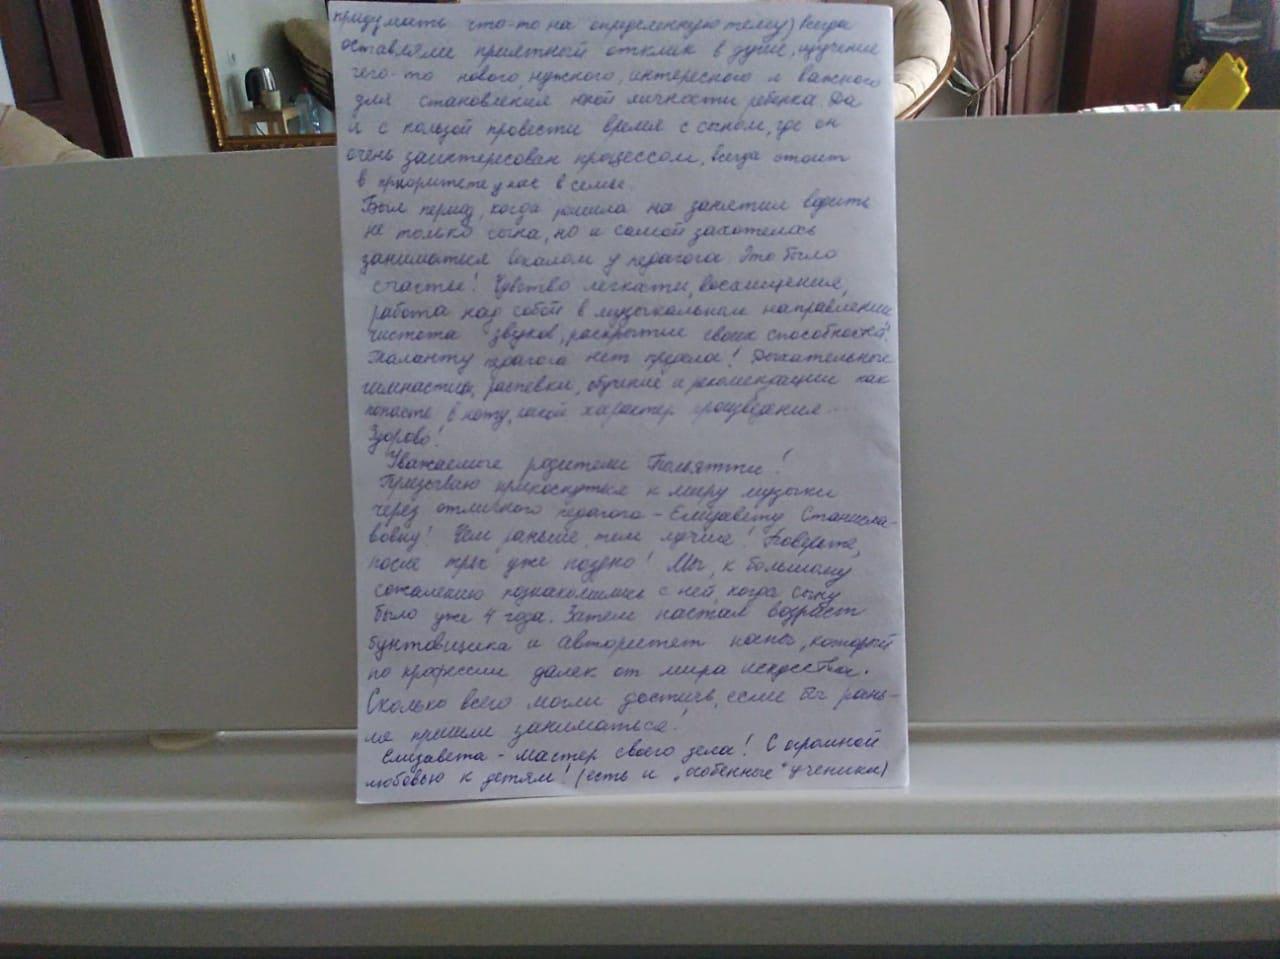 придумать что-то на определенную тему) всегда
оставляли приятной отклик в душе, изучение
чего-то нового, нужного, интересного и важного
для становления юной личности ребенка. Да
и с пользой провести время с сыном, где он
очень заинтересован процессом, всегда стоит
в приоритете у нас в семье.
Был период, когда решила на занятия водить
не только сына, но и самой захотелось
заниматься вокалом у педагога. Это было
счастье! Чувство легкости, восхищения,
работа над собой в музыкальном направлении
чистота звуков, раскрытие своих способностей.
Таланту педагога нет предела! Дыхательные
гимнастики, распевки, обучение и рекомендации как
попасть в ноту, какой характер произведения...
Здорово!
Уважаемые родители Тольятти!
Призываю прикоснуться к миру музыки
через отличного педагога - Елизавету Станисла-
вовну! Чем раньше, тем лучше! Поверьте,
после трёх уже поздно! Мы, к большому
сожалению познакомились с ней, когда сыну
было уже 4 года. Затем настал возраст
бунтовщика и авторитет папы, который
по профессии далек от мира искусства.
Сколько всего могли достичь, если бы рань-
ше пришли заниматься!
Елизавета - мастер своего дела! С огромной
любовью к детям! (есть и "особенные" ученики)